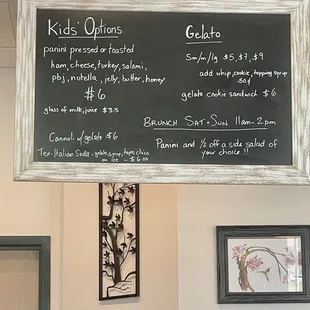 Kids' Options
panini pressed or toasted
ham, cheese, turkey, salami,
pbj, nutella, jelly, butter, honey
$6
glass of milk, juice $3.5
Cannoli w/ gelato $6
Tex-Italian Soda - gelato & syrup, topo chico
on ice - $6.00
Gelato
Sm/m/lg $5, $7, $9
add whip, cookie, topping syrup
.50¢
gelato cookie sandwich $6
BRUNCH SAT + SUN 11am-2pm
Panini and ½ off a side salad of
your choice !!